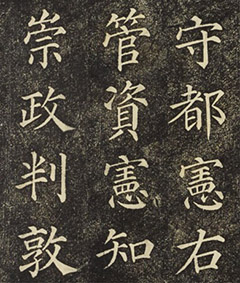 守都憲右
管資憲知
崇政判敦